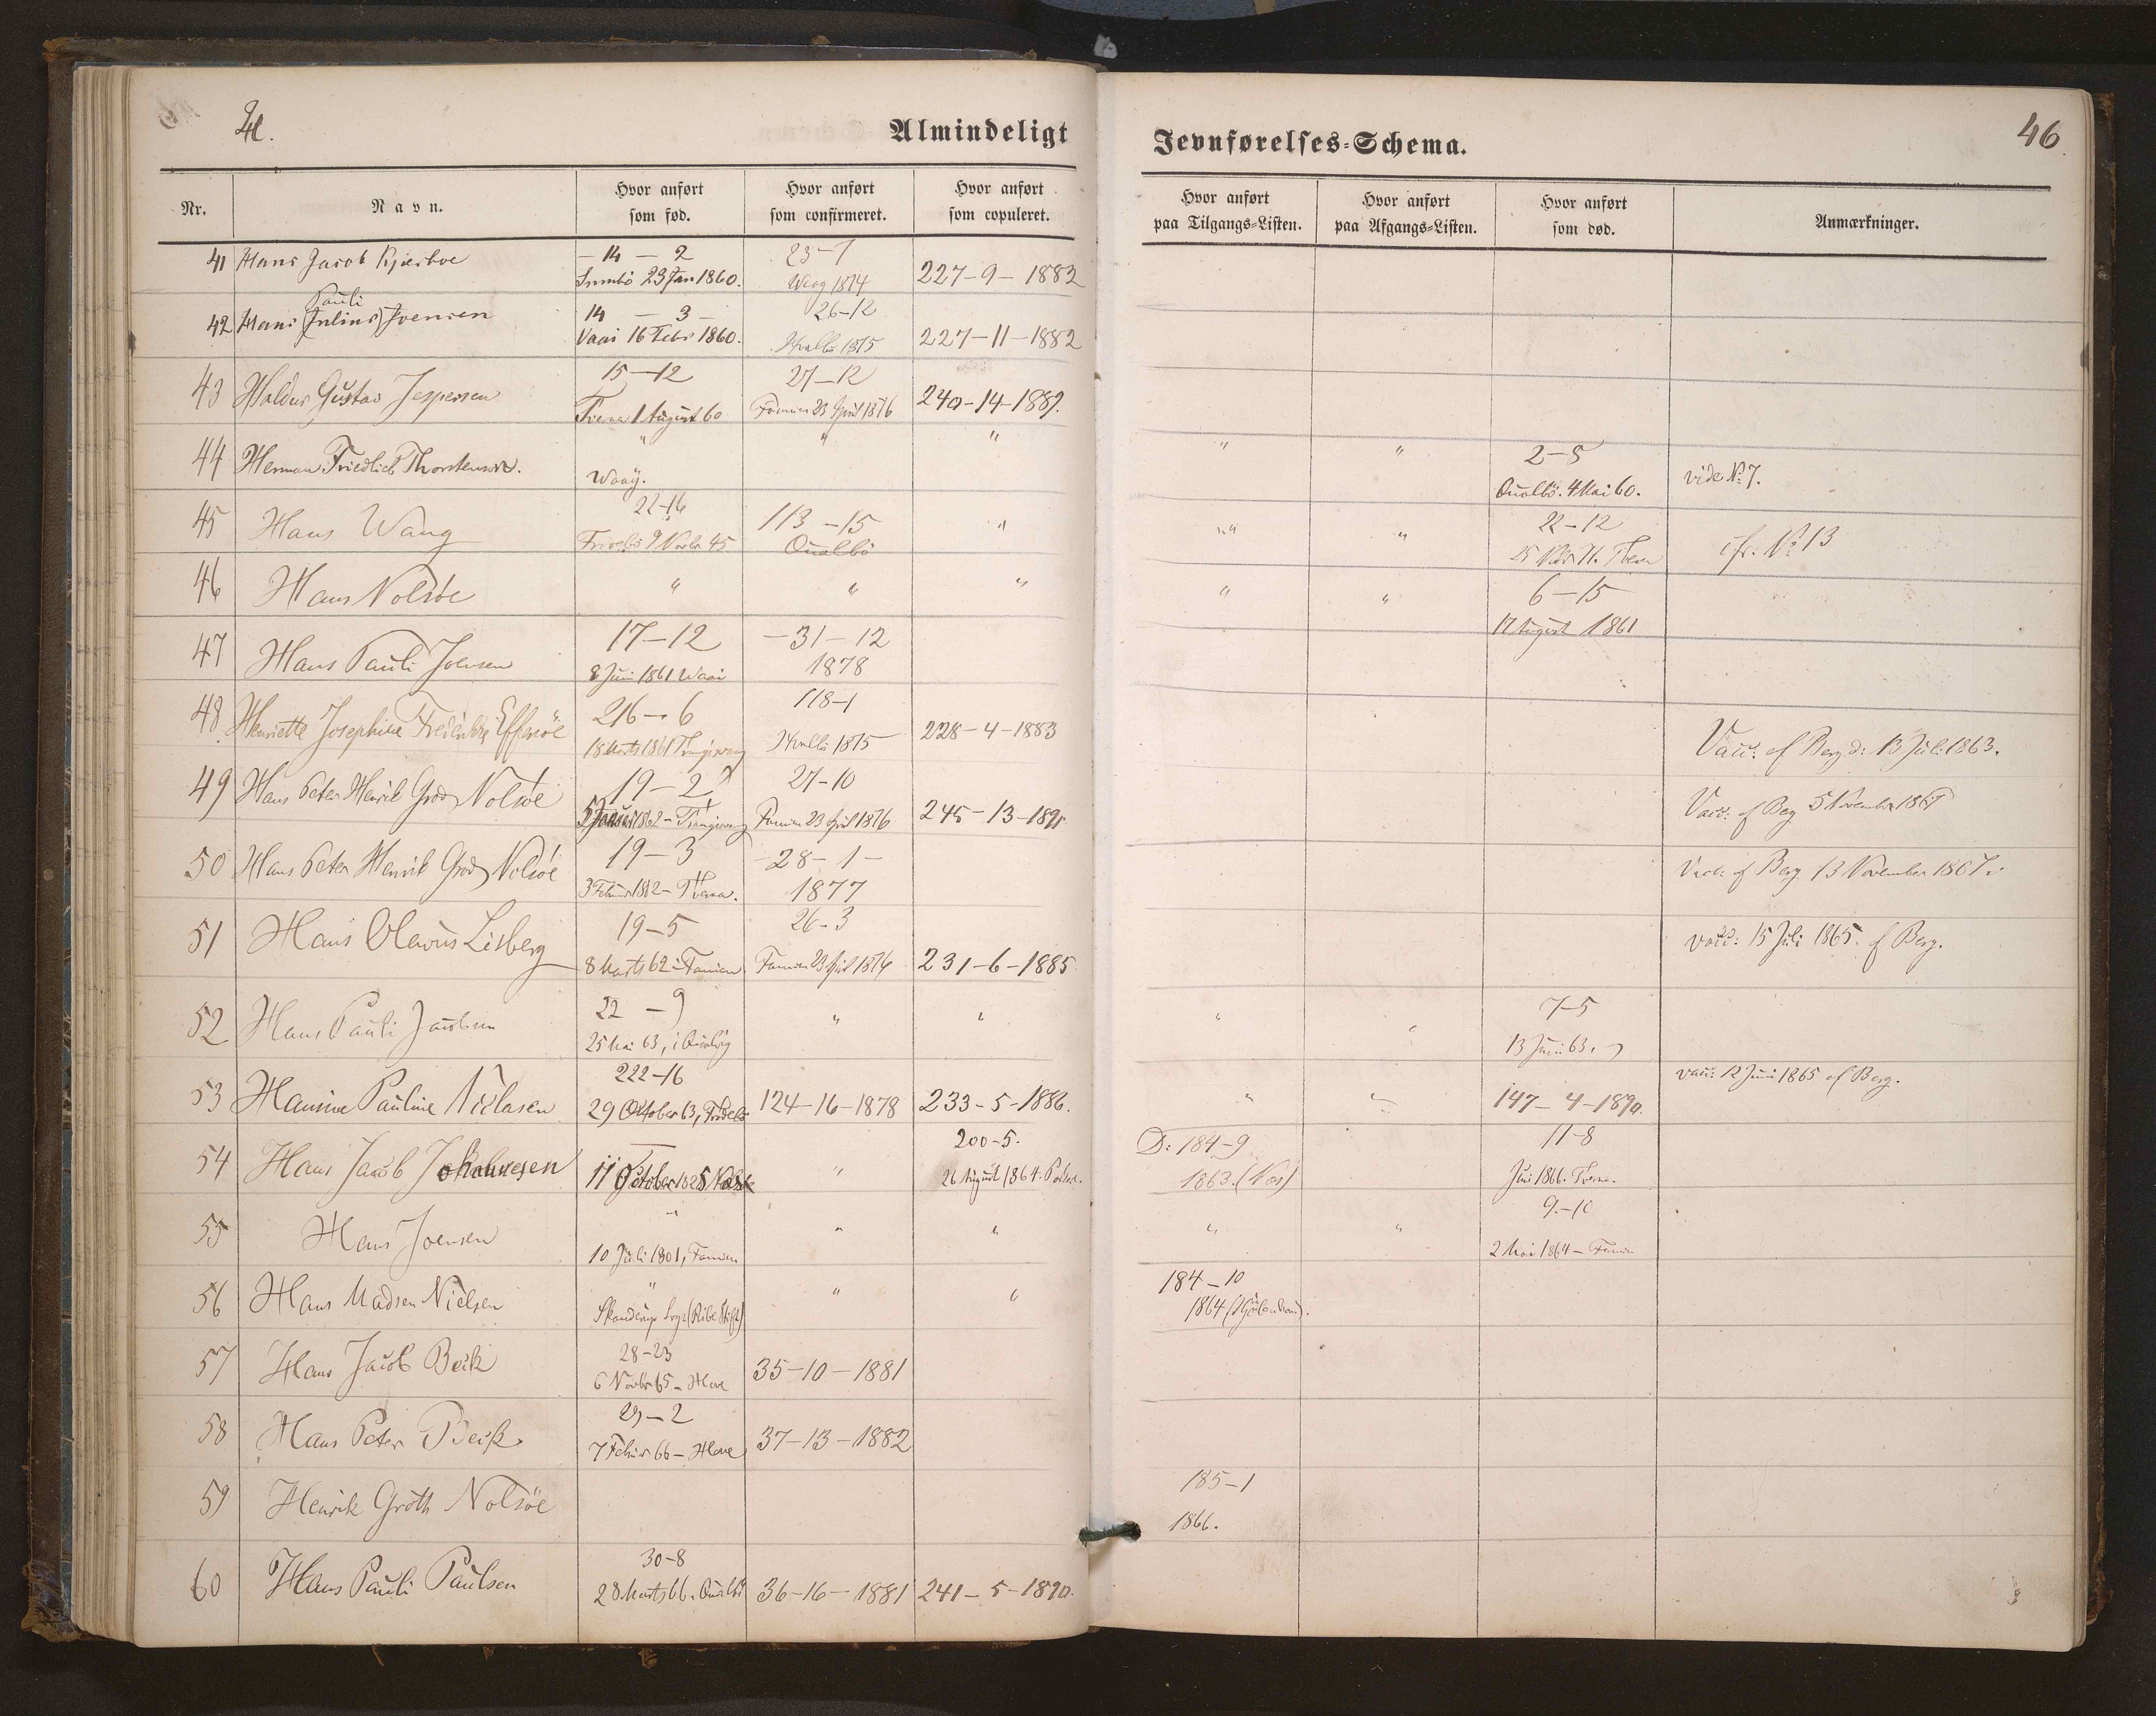 H.
Almindeligt
Jevnførelses=Schema.
46
Nr.
Navn.
Hvor anført som fød.
Hvor anført som confirmeret.
Hvor anført som copuleret.
Hvor anført paa Tilgangs=Listen.
Hvor anført paa Afgangs=Listen.
Hvor anført som død.
Anmærkninger.
41 Hans Jacob Kjærboe – 14 – 2 23–7
Sumbö 23 Jan 1860. Waag 1874 227–9–1882
Pauli
42 Hans (Julius) Joensen 14 – 3 – 26–12
Vaai 16 Febr 1860. Hvalbö 1875 227–11–1882
43 Haldur Gustav Jespersen 15–12 27–12 240–14–1889.
Tveraa 1 August 60 Famien 23 April 1876
44 Herman Friedlich Thorstensen. " " " " " 2–5 vide No 7.
Waaij. Qualbö. 4 Mai 60.
45 Hans Wang 22–16 113–15 " " " 22–12 cfr. No 13
Frodebö 9 Novbr 45 Qualbö
46 Hans Nolsöe " " " " " 6–15
17 August 1861
47 Hans Pauli Joensen 17–12 –31–12
8 Juni 1861 Waai 1878
48 Henriette Josephine Effersöe 216–6 118–1 228–4–1883
18 Marts 1861 Hvalbö 1875 Vacc: af Berg d: 13 Juli 1863.
49 Hans Peter Henrik Nolsöe 19–2 27–10
1862 – Famien 23 April 1876 245–13–1891 Vacc: af Berg 5 November 1867
50 Hans Peter Henrik Nolsöe 19–3 –28–1–
3 Februar 1862 – Tveraa. 1877 Vacc: af Berg 13 November 1867.
51 Hans Olevius Lisberg 19–5 26–3
8 Marts 62 – Famien Famien 23 April 1876 231–6–1885 vacc: 15 Juli 1865. af Berg.
52 Hans Pauli Jacobsen 22 – 9 " " " " 7–5
25 Mai 63, i 13 Juni 63.
53 Hansine Pauline Niclasen 222–16 vacc: 12 Juni 1865 af Berg.
29 October 63, Frodebö 124–16–1878 233–5–1886. " 147–4–1890.
54 Hans Jacob Johannesen – " 200–5. D: 184–9 11–8
11 October 1825 26 August 1864. 1863. (Næs) Juni 1866. Tveraa.
55 Hans Joensen " " " " " 9–10
10 Juli 1801, Famien 2 Mai 1864 – Famien
56 Hans Madsen Nielsen " " " 184–10
Skanderup Sogn (Ribe Stift) 1864
57 Hans Jacob Beck 28–23 35–10–1881
6 Novbr 65 – Hove
58 Hans Peter Beck 29–2 37–13–1882
7 Februar 66 – Hove
59 Henrik Groth Nolsöe 185–1
1866.
60 Hans Pauli Paulsen 30–8
28 Marts 66. Qualbö 36–16–1881 241–5–1890.